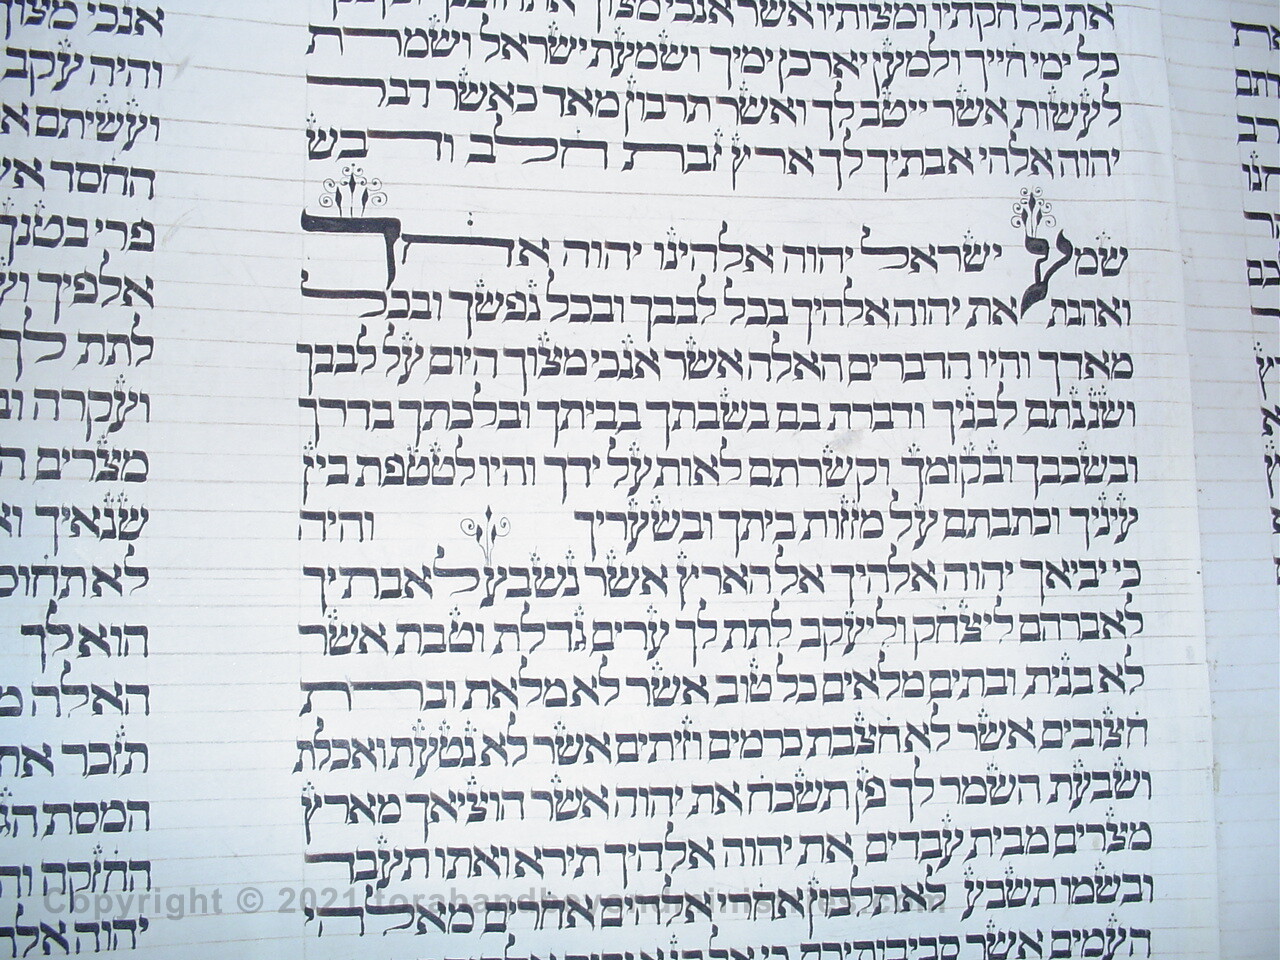 את כל חקתיו ומצותיו אשר אנכי מצוך
כל ימי חייך ולמען יארכן ימיך ושמעת ישראל ושמרת
לעשות אשר ייטב לך ואשר תרבון מאד כאשר דבר
יהוה אלהי אבתיך לך ארץ זבת חלב ודבש
שמע ישראל יהוה אלהינו יהוה אחד
ואהבת את יהוה אלהיך בכל לבבך ובכל נפשך ובכל
מאדך והיו הדברים האלה אשר אנכי מצוך היום על לבבך
ושננתם לבניך ודברת בם בשבתך בביתך ובלכתך בדרך
ובשכבך ובקומך וקשרתם לאות על ידך והיו לטטפת בין
עיניך וכתבתם על מזזות ביתך ובשעריך והיה
כי יביאך יהוה אלהיך אל הארץ אשר נשבע לאבתיך
לאברהם ליצחק וליעקב לתת לך ערים גדלת וטבת אשר
לא בנית ובתים מלאים כל טוב אשר לא מלאת וברת
חצובים אשר לא חצבת כרמים וזיתים אשר לא נטעת ואכלת
ושבעת השמר לך פן תשכח את יהוה אשר הוציאך מארץ
מצרים מבית עבדים את יהוה אלהיך תירא ואתו תעבד
ובשמו תשבע לא תלכון אחרי אלהים אחרים מאלהי
העמים אשר סביבותיכם כי אל
אנכי מצוך
והיה עקב
ועשיתם א
החסד אש
פרי בטנך
אלפיך וע
לתת לך
ועקרה וב
מצרים ה
שנאיך וא
לא תחוס
הוא לך
האלה מ
תזכר את
המסת הג
החזקה וה
יהוה אלה
Copyright © 2021 torahandbeyondministries.com